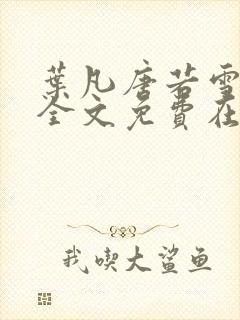 葉凡唐若雪
全文免費在
我喫大鯊魚